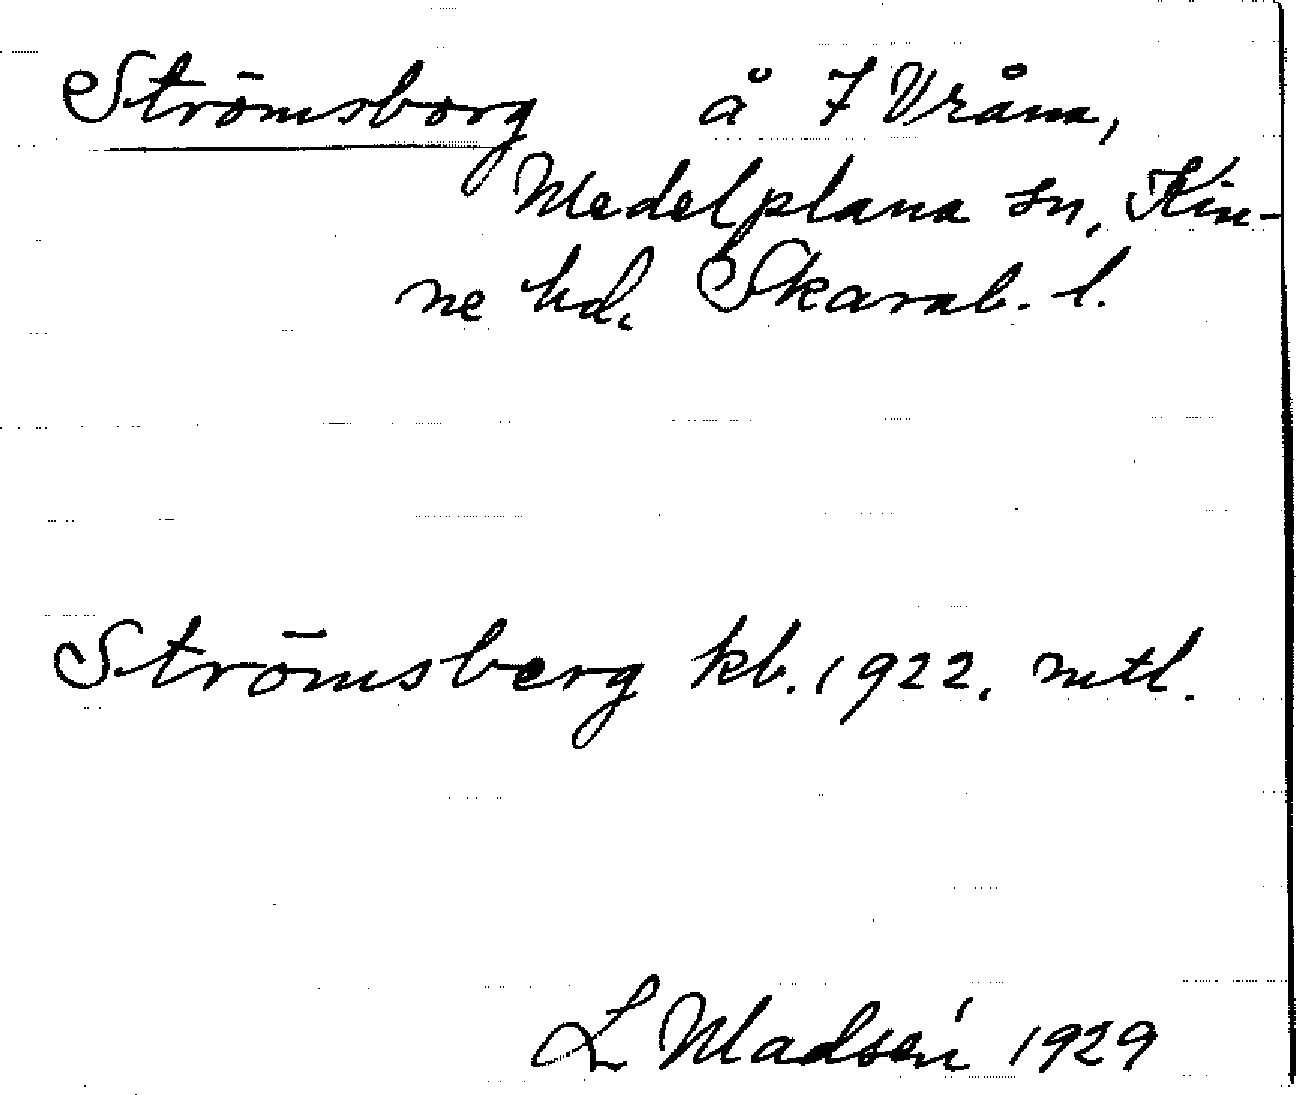 Strömsborg å 7 Vråna,
Medelplana sn, Kin-
ne hd, Skarab. l.
Strömsberg kb. 1922. mtl.
L Madsén 1929